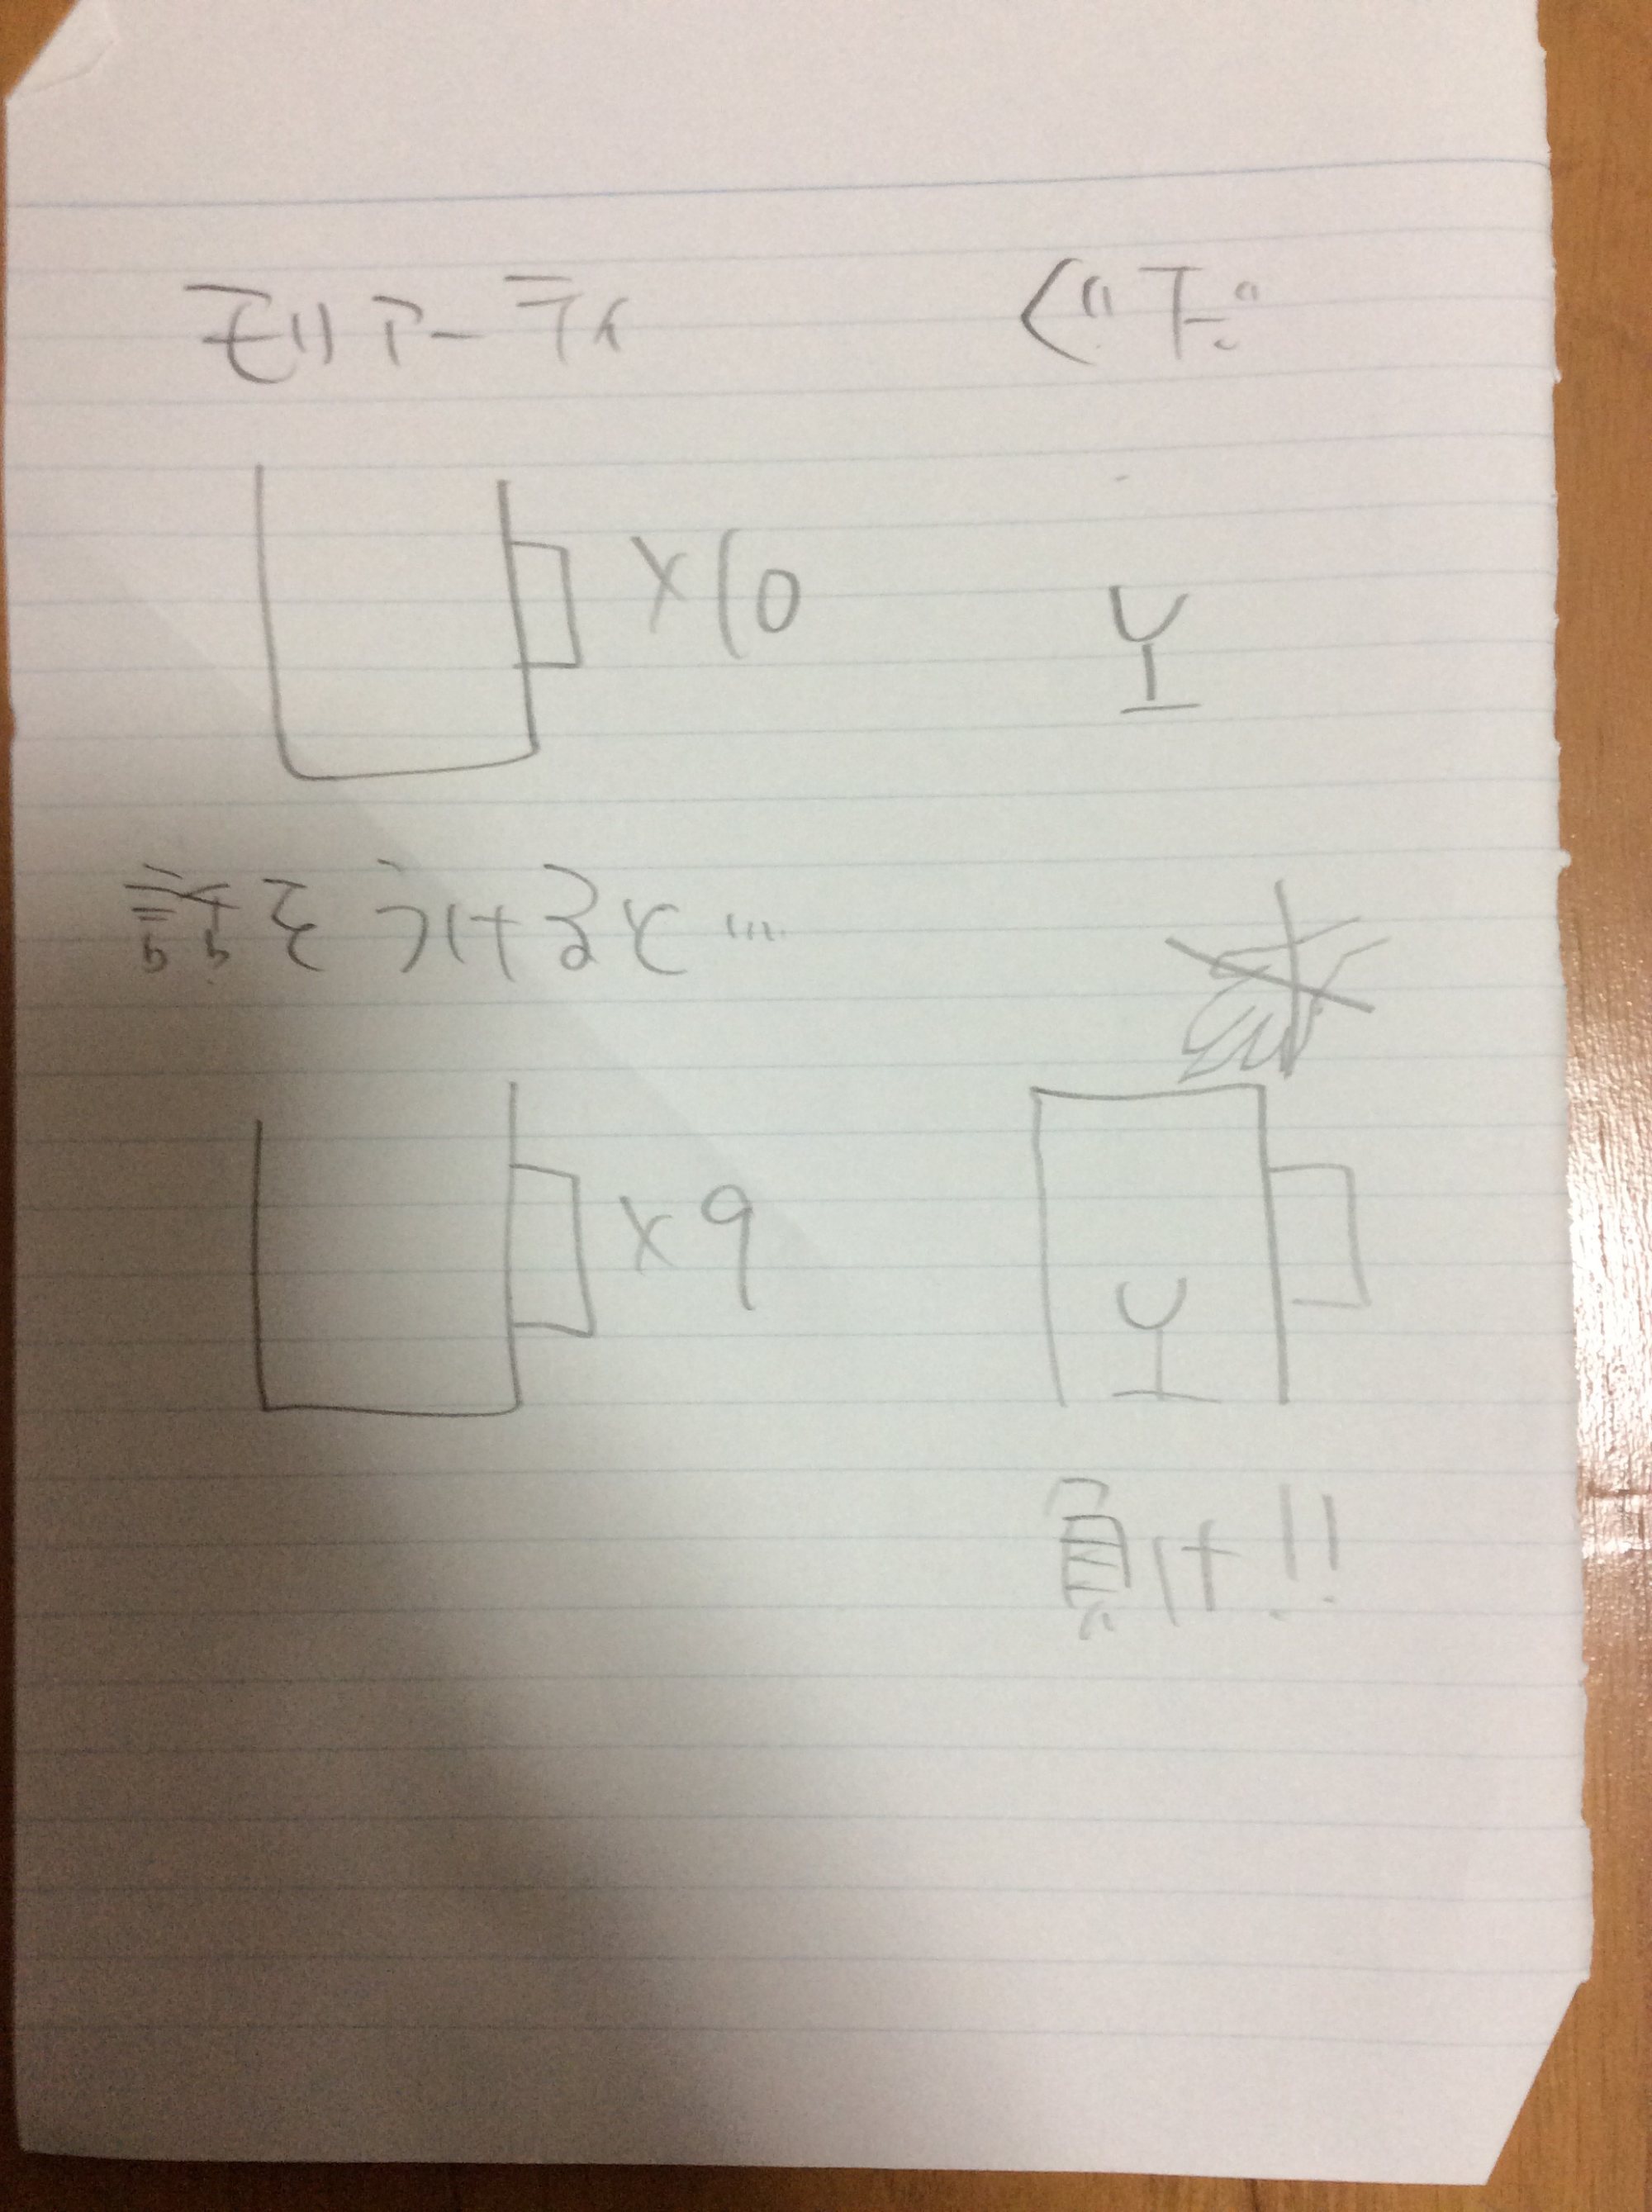 モリアーティ
×10
話をうけると…
×9
負け!!